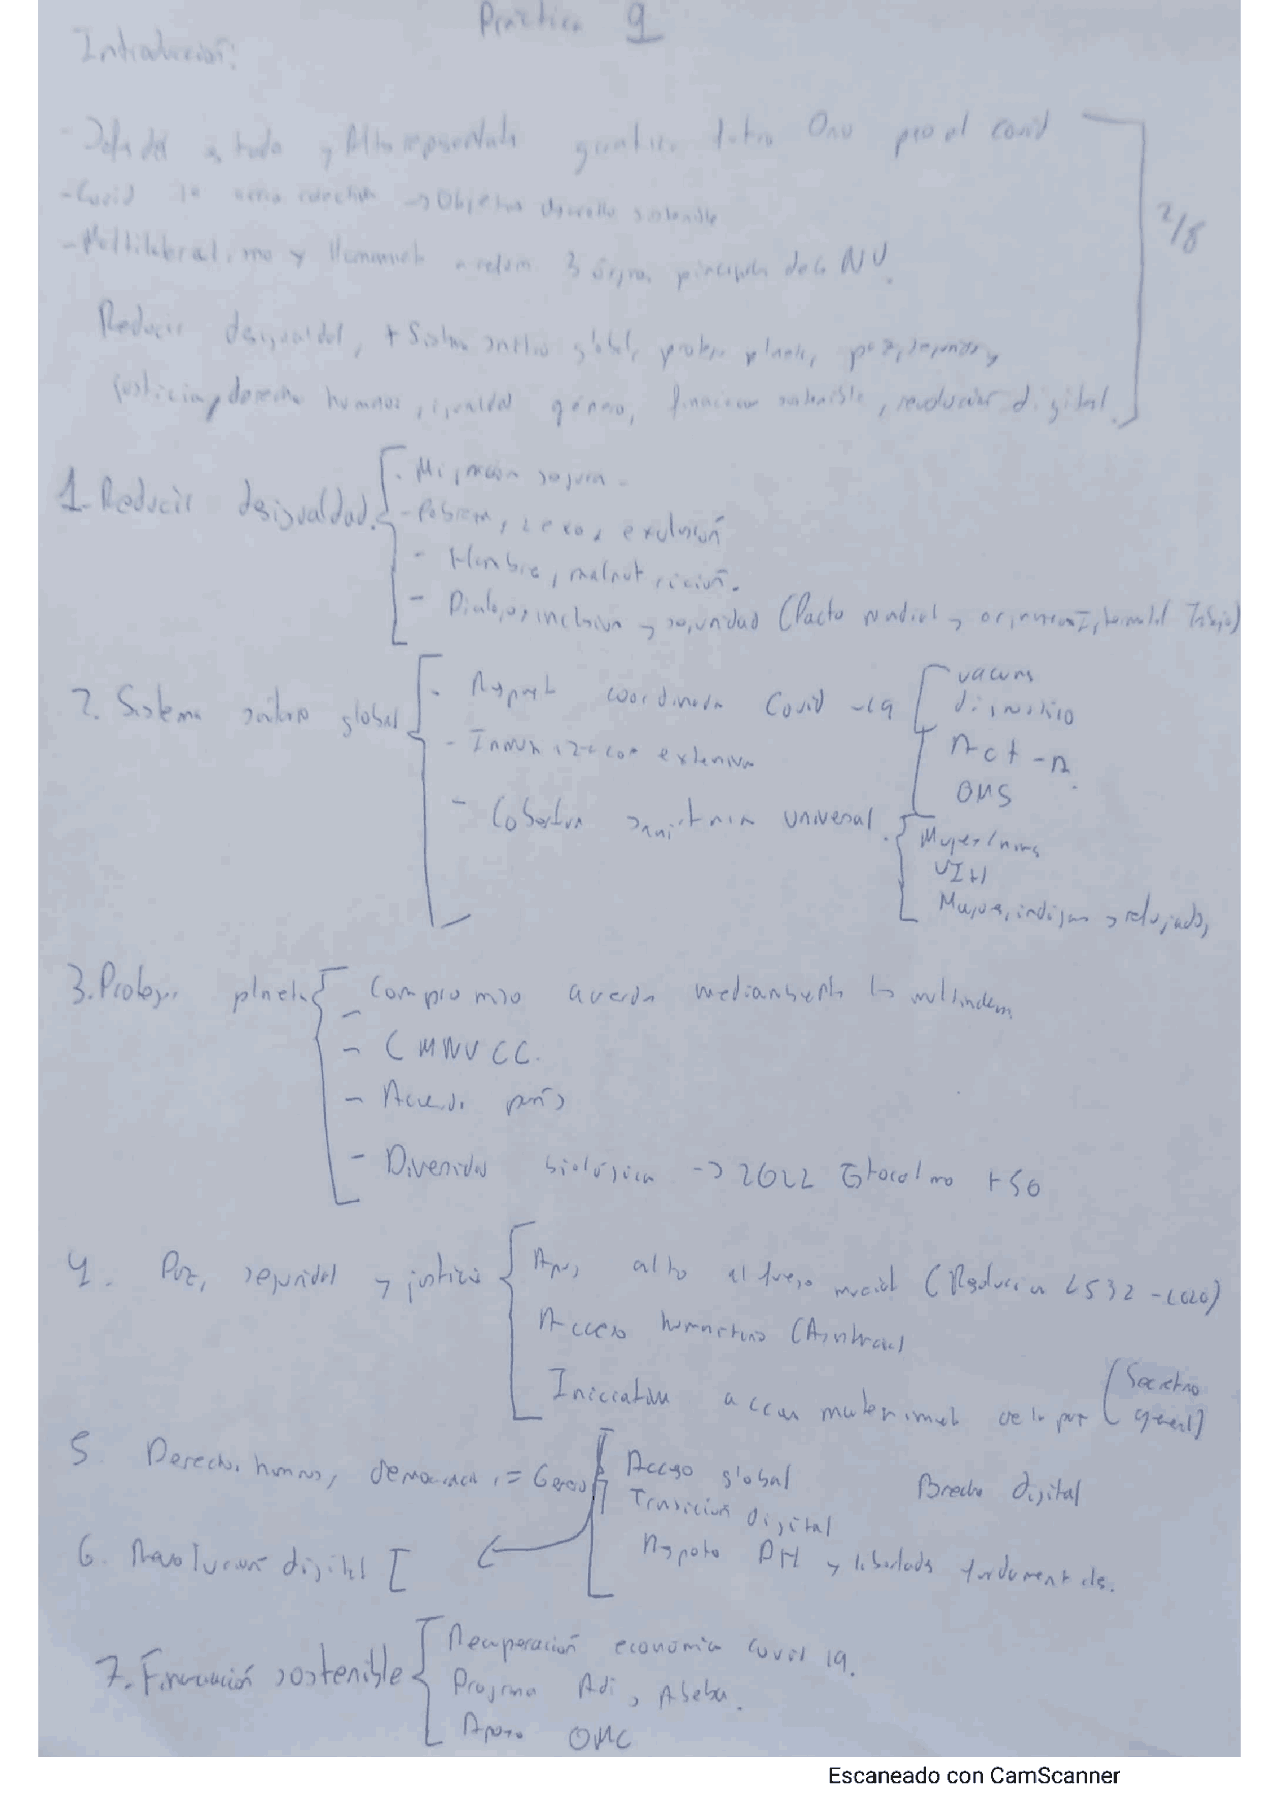 Práctica 9
Introducción:
- Jefes de estado y Alto representante dentro Onu el covid
- Covid 19 → Objetivos desarrollo sostenible
- Multilateralismo y 3 órganos principales de la NU.
2/8
Reducir desigualdad, + Sistema sanitario global, proteger planeta, paz, seguridad y
justicia, derechos humanos, igualdad género, financiación sostenible, revolución digital.
1. Reducir desigualdad.
- Migración segura.
- Pobreza, sexo, exclusión
- Hambre, malnutrición.
- Dialogo inclusivo y seguridad (Pacto mundial y organización Internacional Trabajo)
2. Sistema sanitario global
- Respuesta coordinada Covid -19
vacunas
diagnóstico
Act - A.
OMS
- Inmunización extensiva
- Cobertura sanitaria universal.
Mujeres/niñas
VIH
indígenas y refugiados,
3. Proteger planeta
- Compromiso acuerdos
- CMNUCC.
- Acuerdo parís
- Diversidad biológica -> 2022 Estocolmo +50
4. Paz, seguridad y justicia
Apoyo alto al fuego mundial (Resolución 2532 - 2020)
Acceso humanitario
Iniciativa acción de la paz (Secretario general)
5. Derechos humanos, democracia, = Genero
Acceso global
Brecha digital
Transición digital
Respeto DH y libertades fundamentales.
6. Revolución digital [
7. Financiación sostenible
Recuperación económica covid 19.
Programa Adis Abeba.
Apoyo OMC
Escaneado con CamScanner